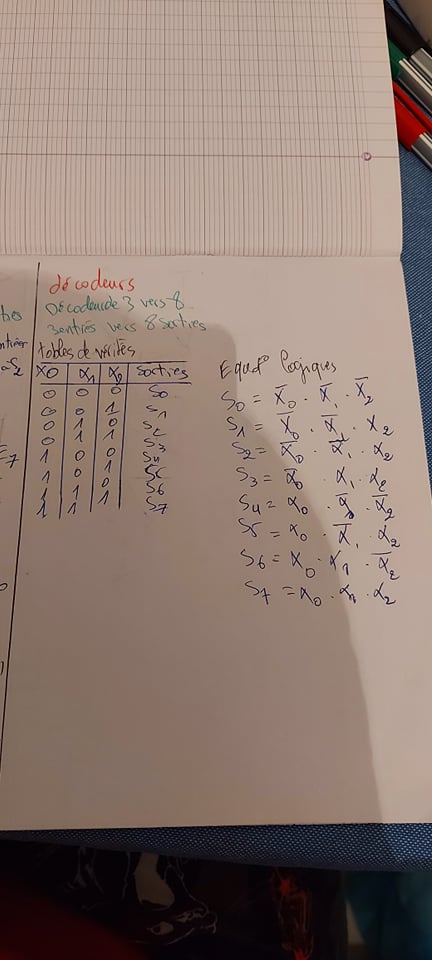 décodeurs
Décodeur de 3 vers 8
3 entrés vers 8 Sorties
tables de vérités
X0 X1 X2 Sorties
0 0 0 S0
0 0 1 S1
0 1 0 S2
0 1 1 S3
1 0 0 S4
1 0 1 S5
1 1 0 S6
1 1 1 S7
Equat° logiques
S0 = X̅0 . X̅1 . X̅2
S1 = X̅0 . X̅1 . X2
S3 = X̅0 . X1 . X2
S4 = X0 . X̅1 . X̅2
S5 = X0 . X̅1 . X2
S6 = X0 . X1 . X̅2
S7 = X0 . X1 . X2